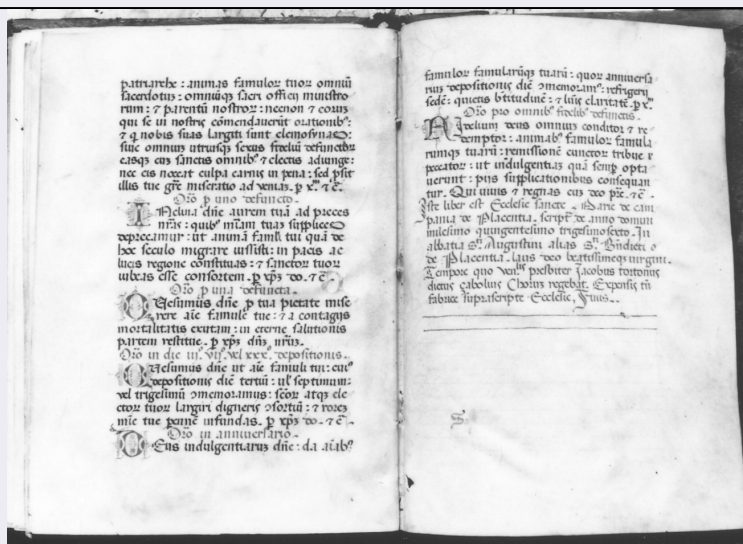 patriarche : animas famulor tuor omniũ
sacerdotũ : omniũqȝ sacri officij ministro
rum : ⁊ parentũ nostror : necnon ⁊ eorum
qui se in nostris cõmendauerũt orationibꝰ :
⁊ q nobis suas largiti sunt elemosynas :
siue omnium utriusqȝ sexus fideliũ defunctor
easqȝ cũ sanctis omnibꝰ ⁊ electis adiunge :
nec eis noceat culpa carnis in pena : sed ꝓsit
illis tue grẽ miseratio ad veniaȝ. p x̃. ⁊ c̃.
Orõ p uno defuncto.
Inclina dñe aurem tuã ad preces
nr̃as : quibꝰ miãm tuaȝ supplices
deprecamur : ut animã famli tui quã de
hoc seculo migrare iussisti : in pacis ac
lucis regione constituas : ⁊ sanctor tuor
iubeas esse consortem. p xp̃ȝ do. ⁊ c̃.
Orõ p una defuncta.
Quesumus dñe p tua pietate mise
rere aĩe famule tue : ⁊ a contagijs
mortalitatis exutam : in eterne saluationis
partem restitue. p xp̃ȝ dñȝ nr̃uȝ.
Orõ in die iijº. vijº. vel xxxº. depositionis.
Quesumus dñe ut aĩe famuli tui : cuiꝰ
depositionis diẽ tertiũ : ul̃ septimum :
vel trigesimũ ↄmemoramus : scõr atqȝ ele
ctor tuor largiri digneris ↄsortiũ : ⁊ roreȝ
mie tue pennẽ infundas. p xp̃ȝ do. ⁊ c̃.
Orõ in anniuersario.
Deus indulgentiarum dñe : da aĩabꝰ
famulor famularũqȝ tuarũ : quor anniuersa
riuȝ depositionis diẽ ↄmemoramꝰ : refrigerij
sedẽ : quietis btitudinẽ : ⁊ luĩs claritatẽ. p x̃.
Orõ pro omnibꝰ fidelibꝰ defunctis.
Fidelium deus omnium conditor ⁊ re
demptor : animabꝰ famulor famula
rumqȝ tuarũ : remissionẽ cunctor tribue
peccator : ut indulgentiaȝ quã semp opta
uerunt : pijs supplicationibus consequan
tur. Qui uiuis ⁊ regnas cuȝ deo pr̃e. ⁊ c̃.
Iste liber est Ecclesie sancte Marie de cam
pania de Placentia. script de anno domini
milesimo quingentesimo trigesimo sexto. In
abbatia S.ti Augustini alias S.ti Bñdicti
de Placentia. laus deo beatissimeqȝ virgini.
Tempore quo ven.lis presbiter Iacobus tortonus
dictus Chorus regebat. Expensis tñ
fabrice suprascripte Ecclesie,